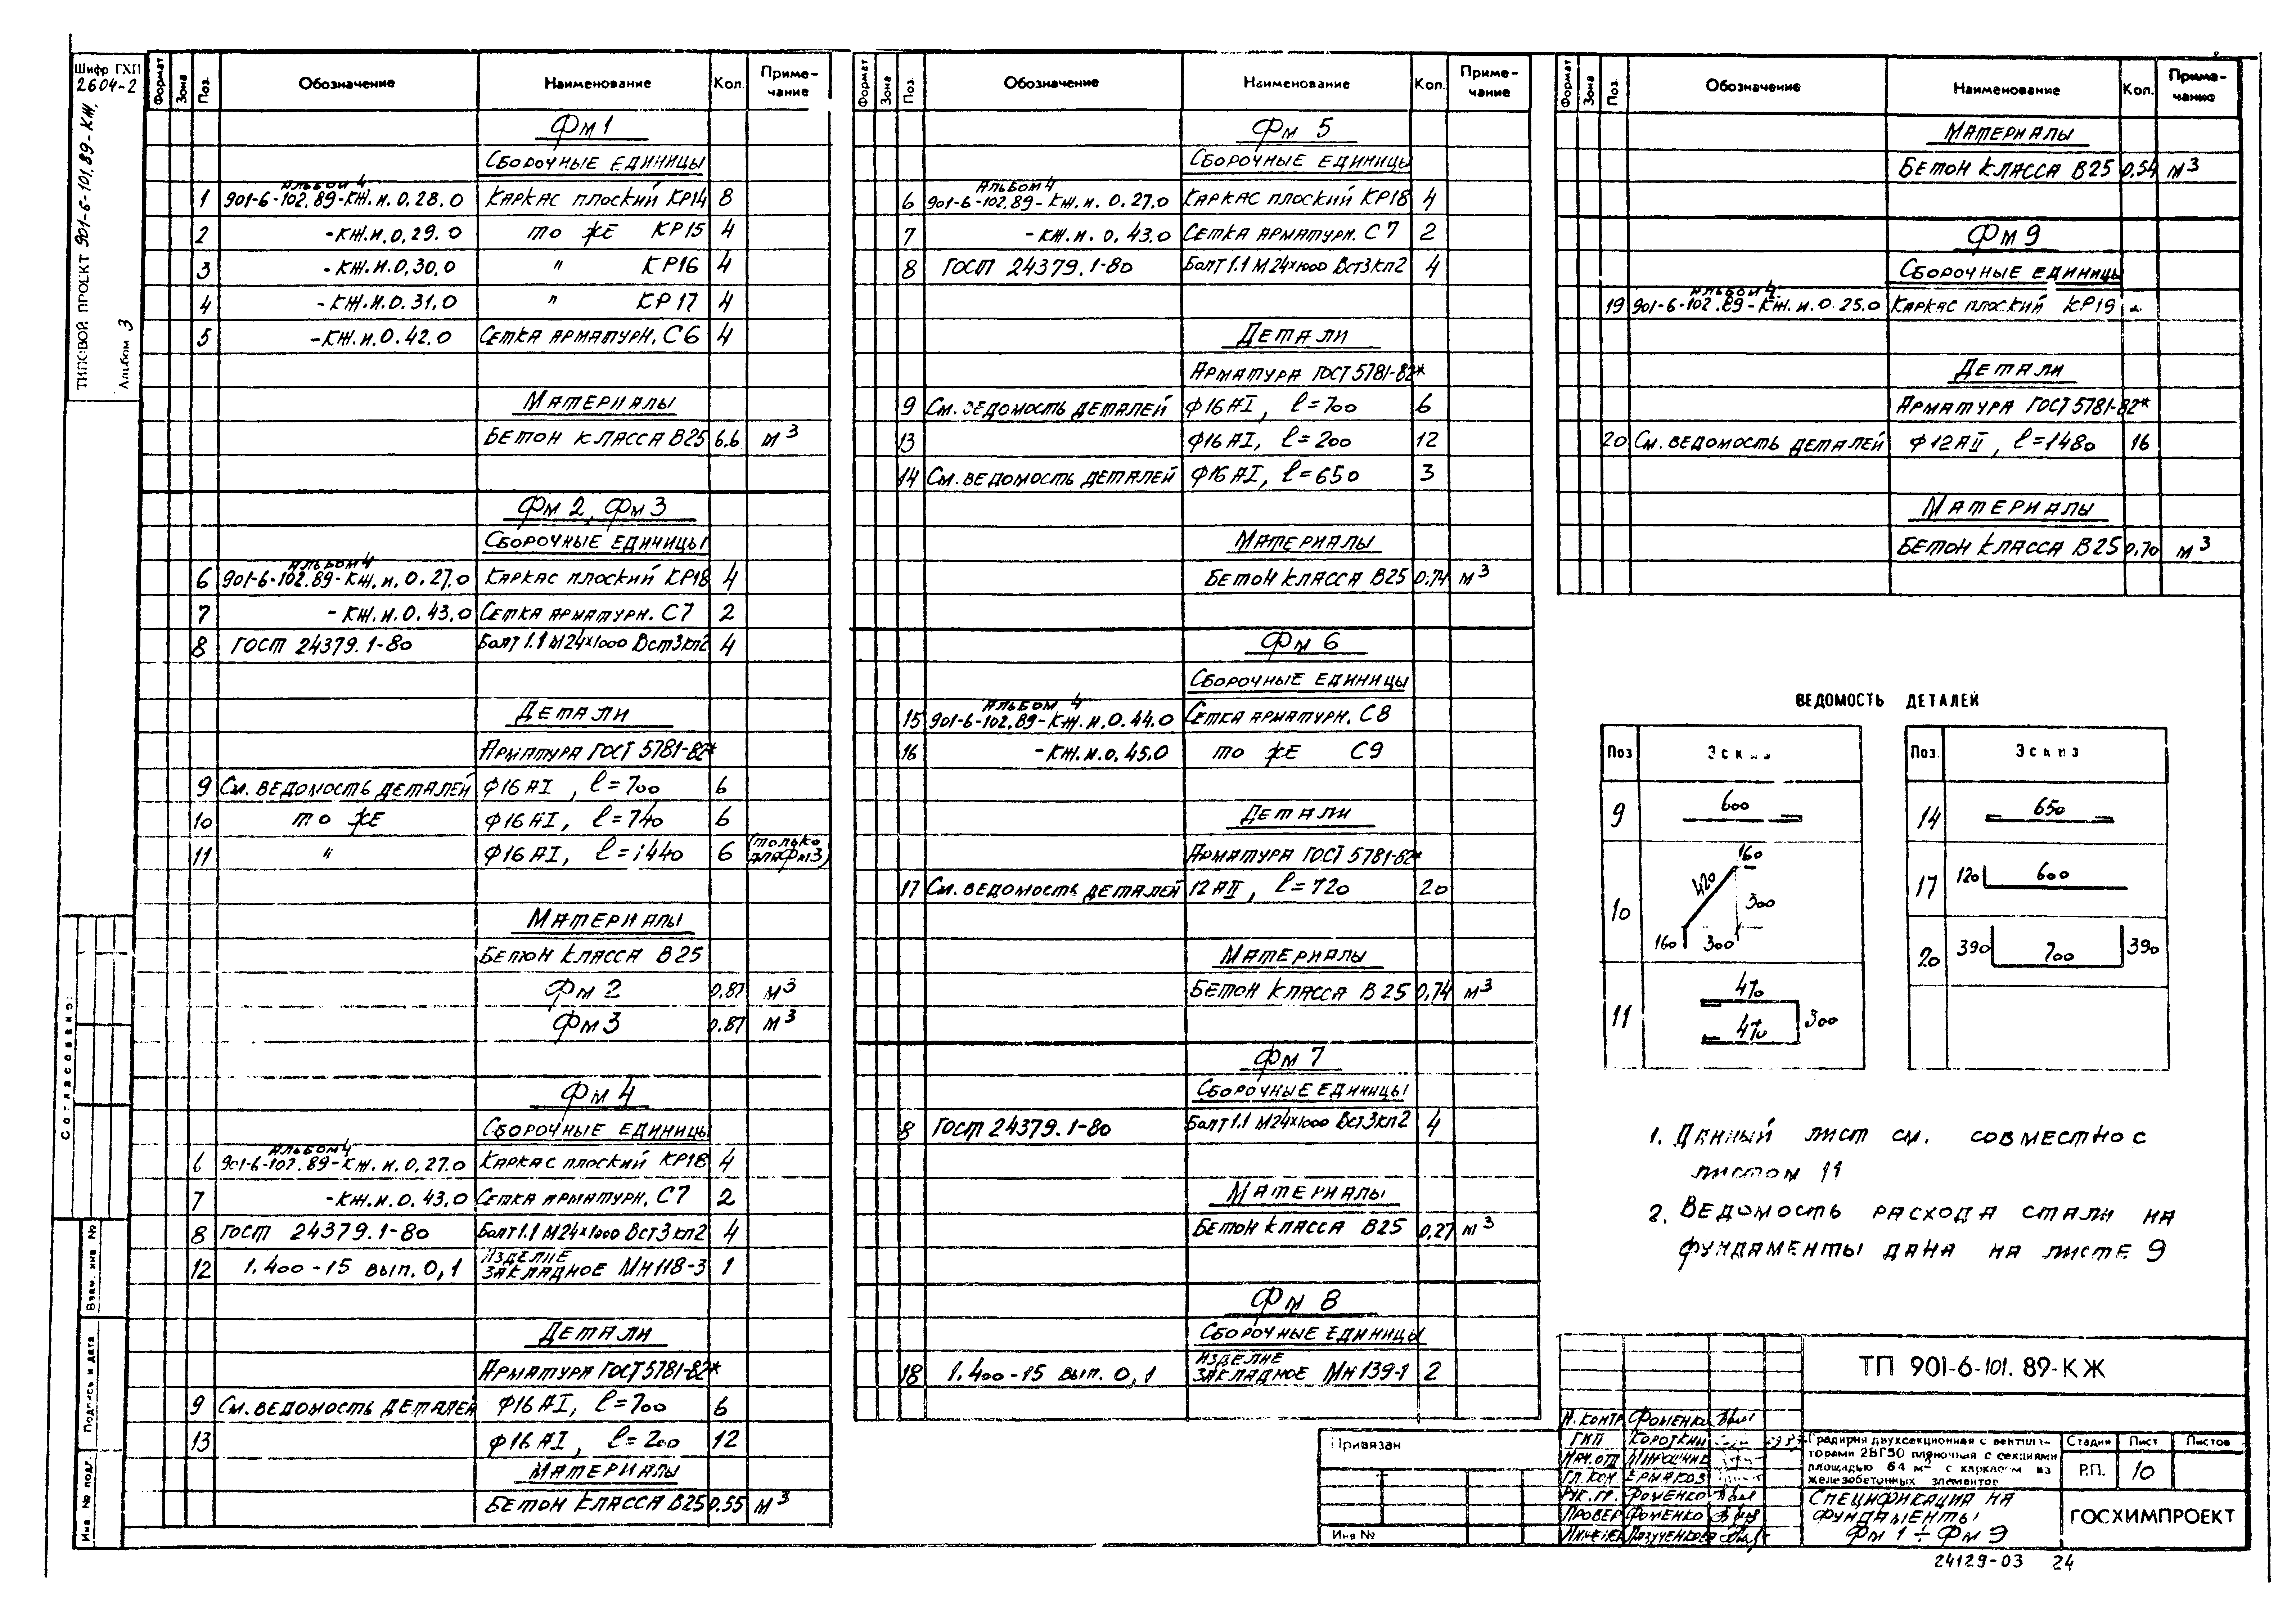 Шифр ГХП
2604-2
ТИПОВОЙ ПРОЕКТ 901-6-101.89-КЖ.
Альбом 3
Согласовано:
Взам. инв №
Подпись и дата
Инв № подл.
Формат Зона Поз. Обозначение Наименование Кол. Приме-чание
Фм1
Сборочные единицы
Альбом 4
1 901-6-102.89-КЖ.и.0.28.0 Каркас плоский КР14 8
2 -КЖ.и.0.29.0 то же КР15 4
3 -КЖ.и.0.30.0 " КР16 4
4 -КЖ.и.0.31.0 " КР17 4
5 -КЖ.и.0.42.0 Сетка арматурн. С6 4
Материалы
Бетон класса В25 6.6 м3
Фм2, Фм3
Сборочные единицы
Альбом 4
6 901-6-102.89-КЖ.и.0.27.0 Каркас плоский КР18 4
7 -КЖ.и.0.43.0 Сетка арматурн. С7 2
8 ГОСТ 24379.1-80 Болт 1.1 М24х1000 Вст3кп2 4
Детали
Арматура ГОСТ 5781-82*
9 См. ведомость деталей Ф16АI, l=700 6
10 то же Ф16АI, l=740 6
11 " Ф16АI, l=1440 6 (только для Фм3)
Материалы
Бетон класса В25
Фм2 0.87 м3
Фм3 0.87 м3
Фм4
Сборочные единицы
Альбом 4
6 901-6-102.89-КЖ.и.0.27.0 Каркас плоский КР18 4
7 -КЖ.и.0.43.0 Сетка арматурн. С7 2
8 ГОСТ 24379.1-80 Болт 1.1 М24х1000 Вст3кп2 4
12 1.400-15 вып. 0,1 Изделие закладное МН118-3 1
Детали
Арматура ГОСТ 5781-82*
9 См. ведомость деталей Ф16АI, l=700 6
13 Ф16АI, l=200 12
Материалы
Бетон класса В25 0,55 м3
Формат Зона Поз. Обозначение Наименование Кол. Приме-чание
Фм 5
Сборочные единицы
Альбом 4
6 901-6-102.89-КЖ.и.0.27.0 Каркас плоский КР18 4
7 -КЖ.и.0.43.0 Сетка арматурн. С7 2
8 ГОСТ 24379.1-80 Болт 1.1 М24х1000 Вст3кп2 4
Детали
Арматура ГОСТ 5781-82*
9 См. ведомость деталей Ф16АI, l=700 6
13 Ф16АI, l=200 12
14 См. ведомость деталей Ф16АI, l=650 3
Материалы
Бетон класса В25 0,74 м3
Фм 6
Сборочные единицы
Альбом 4
15 901-6-102.89-КЖ.и.0.44.0 Сетка арматурн. С8
16 -КЖ.и.0.45.0 то же С9
Детали
Арматура ГОСТ 5781-82*
17 См. ведомость деталей 12АII, l=720 20
Материалы
Бетон класса В25 0,74 м3
Фм 7
Сборочные единицы
8 ГОСТ 24379.1-80 Болт 1.1 М24х1000 Вст3кп2 4
Материалы
Бетон класса В25 0,27 м3
Фм 8
Сборочные единицы
18 1.400-15 вып. 0,1 Изделие закладное МН139-1 2
Формат Зона Поз. Обозначение Наименование Кол. Приме-чание
Материалы
Бетон класса В25 0,54 м3
Фм9
Сборочные единицы
Альбом 4
19 901-6-102.89-КЖ.и.0.25.0 Каркас плоский КР19
Детали
Арматура ГОСТ 5781-82*
20 См. ведомость деталей Ф12АII, l=1480 16
Материалы
Бетон класса В25 0,70 м3
ВЕДОМОСТЬ ДЕТАЛЕЙ
Поз Эскиз
9 600
10 160 420 300 160 300
11 470 470 300
Поз. Эскиз
14 650
17 120 600
20 390 700 390
1. Данный лист см. совместно с
листом 11
2. Ведомость расхода стали на
фундаменты дана на листе 9
Привязан
Инв №
ТП 901-6-101.89-КЖ
Н.контр Фоменко
ГИП Короткин
Нач.отд
Гл.кон Ермаков
Рук.гр. Фоменко
Провер Фоменко
Градирня двухсекционная с вентиля-
торами 2ВГ50 пленочная с секциями
площадью 64 м2 с каркасом из
железобетонных элементов
Стадия Лист Листов
Р.П. 10
Спецификация на
фундаменты
Фм 1 ÷ Фм 9
ГОСХИМПРОЕКТ
24129-03 24